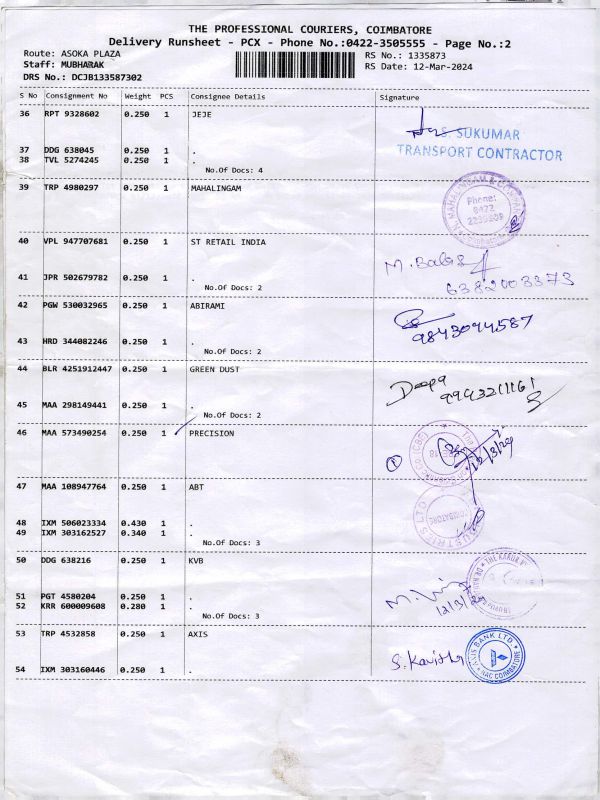 THE PROFESSIONAL COURIERS, COIMBATORE
Delivery Runsheet - PCX - Phone No.:0422-3505555 - Page No.:2
Route: ASOKA PLAZA
RS No.: 1335873
Staff: MUBHARAK
RS Date: 12-Mar-2024
DRS No.: DCJB133587302
S No Consignment No Weight PCS Consignee Details Signature
36 RPT 9328602 0.250 1 JEJE
S. SUKUMAR
TRANSPORT CONTRACTOR
37 DDG 638045 0.250 1 .
38 TVL 5274245 0.250 1 .
No.Of Docs: 4
39 TRP 4980297 0.250 1 MAHALINGAM
Phone:
0422
40 VPL 947707681 0.250 1 ST RETAIL INDIA
M. Babu
6382003373
41 JPR 502679782 0.250 1 .
No.Of Docs: 2
42 PGW 530032965 0.250 1 ABIRAMI
9843094587
43 HRD 344082246 0.250 1 .
No.Of Docs: 2
44 BLR 4251912447 0.250 1 GREEN DUST
Deepa
9943211161
45 MAA 298149441 0.250 1 .
No.Of Docs: 2
46 MAA 573490254 0.250 1 PRECISION
1
12/3/24
47 MAA 108947764 0.250 1 ABT
48 IXM 506023334 0.430 1 .
49 IXM 303162527 0.340 1 .
No.Of Docs: 3
50 DDG 638216 0.250 1 KVB
12/3/24
51 PGT 4580204 0.250 1 .
52 KRR 600009608 0.280 1 .
No.Of Docs: 3
53 TRP 4532858 0.250 1 AXIS
S. Kavitha
AXIS BANK LTD
RAC COIMBATORE
54 IXM 303160446 0.250 1 .